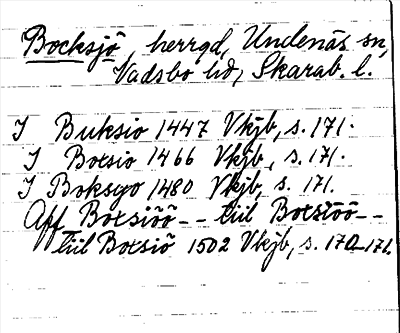 Bocksjö, herrgd, Undenäs sn,
Vadsbo hd, Skarab. l.
I Buksio 1447 Vkjb, s. 171.
I Botsio 1466 Vkjb, s. 171.
I Boksyo 1480 Vkjb, s. 171.
Aff Botsiöö -- tiil Botsiöö --
tiil Botsiö 1502 Vkjb, s. 170-171.